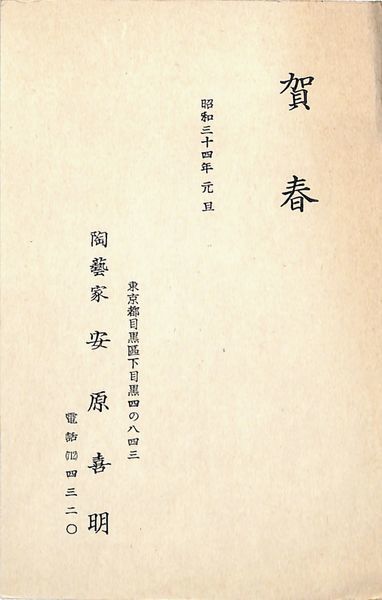 賀春
昭和三十四年元旦
東京都目黒區下目黒四の八四三
陶藝家 安原喜明
電話(712)四三二〇